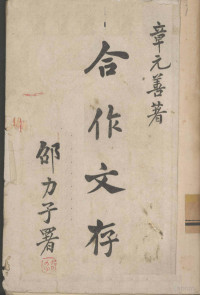 章元善著
合作文存
邵力子署